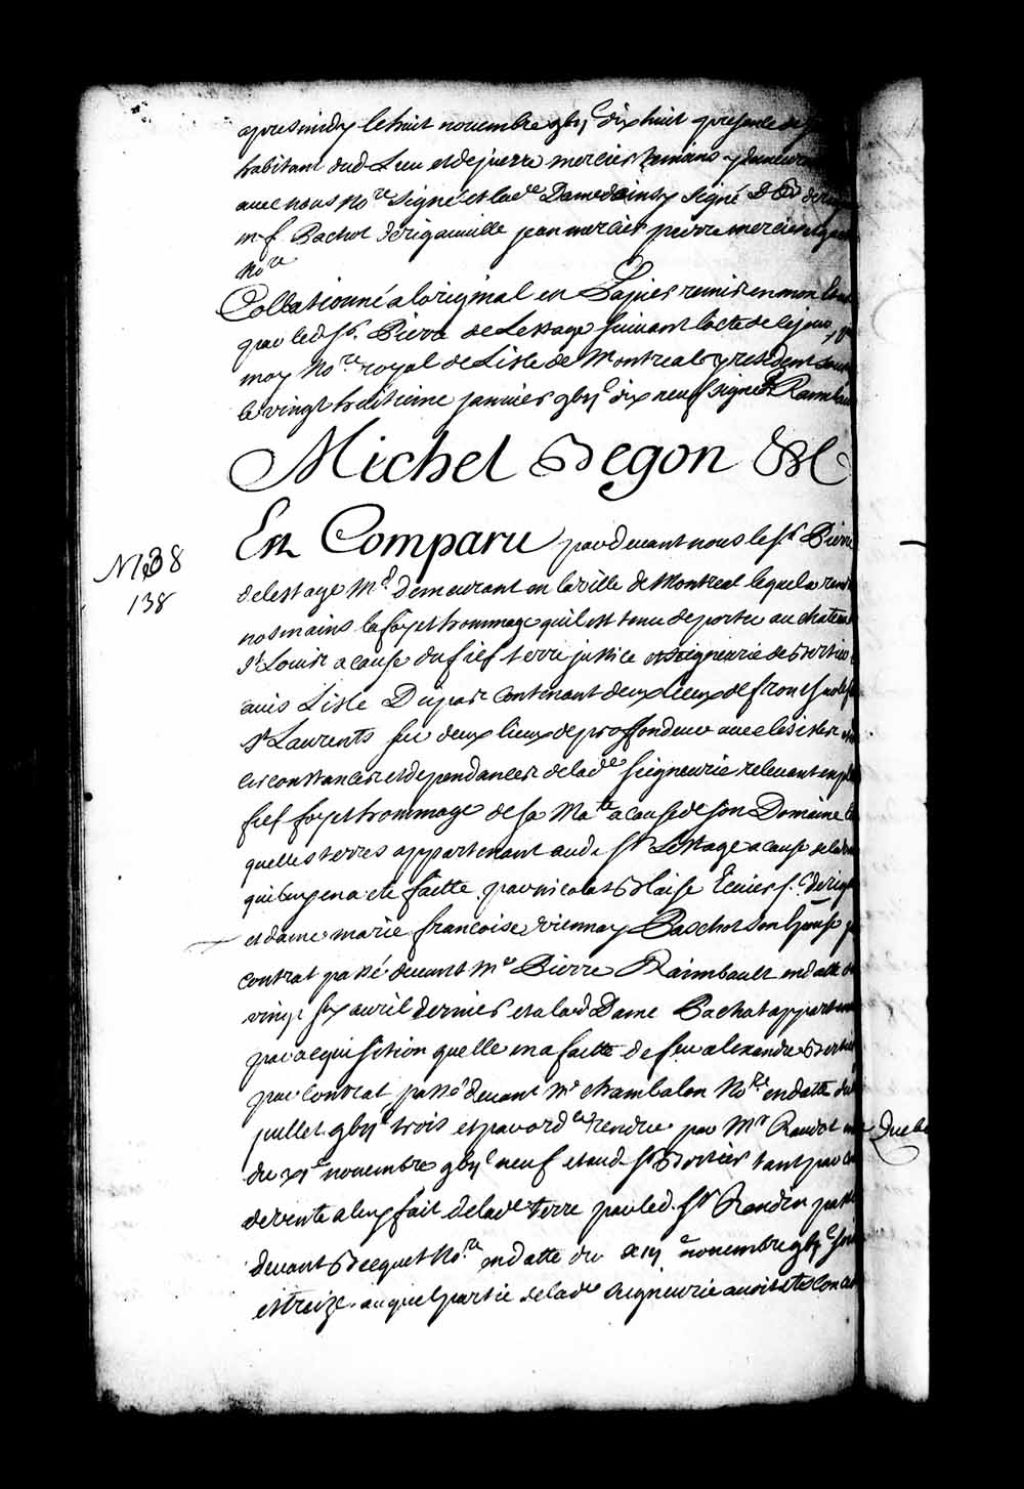 apresmidy le huit novembre gbijC dix huit presence de
habitant dud. Lieu et de pierre mercier temoins y demeurant
avec nous Nore signé et lade Dame de insy signé D
m f Pachot Derigauville jean mercier pierre mercier
Nore
Collationné a loriginal en Papier remis en mon
par led. Sr. Pierre de Lestage suivant l'acte de ce jour
moy Nore royal de Lisle de Montreal y resident
le vingt huitieme janvier gbijC dix neuf signé Raimbau
Michel Begon &c
Est Comparu pardevant nous le Sr Pierre
delestage Md. demeurant en la ville de Montreal lequel a
nos mains la foy et hommage quil est tenu de porter au chateau
St Louis a cause du fief terre justice et seigneurie de Bertier
avis Lisle Dupas contenant deux lieux de front
St Laurents sur deux lieux de proffondeur avec les isles
circonstances et dependances delade seigneurie relevant en
fief foy et hommage de sa Mate a cause de son Domaine
quelles terres appartenant aud. Sr Lestage a cause de la
qui luy en a ete faitte par nicolas Blaise Ecuier S. derig
et dame marie francoise viennay Paschot son Epouse
contrat passé devant Me Pierre Raimbault en datte
vingt six avril dernier et alad Dame Pachot
par acquisition quelle en a faitte de feu alexandre Bertier
par Contrat passé devant Me Chambalon Nore en datte du
juillet gbijC trois et par ordce rendue par Mr Raudot Quebe
du xie novembre gbijC neuf et aud. Sr Bertier tant par
de vente a luy fait delade terre par led. Sr Randin passé
devant Becquet Nore en datte du novembre gbjC
et treize. auquel partie delade seigneurie avoit ete
No 138
138